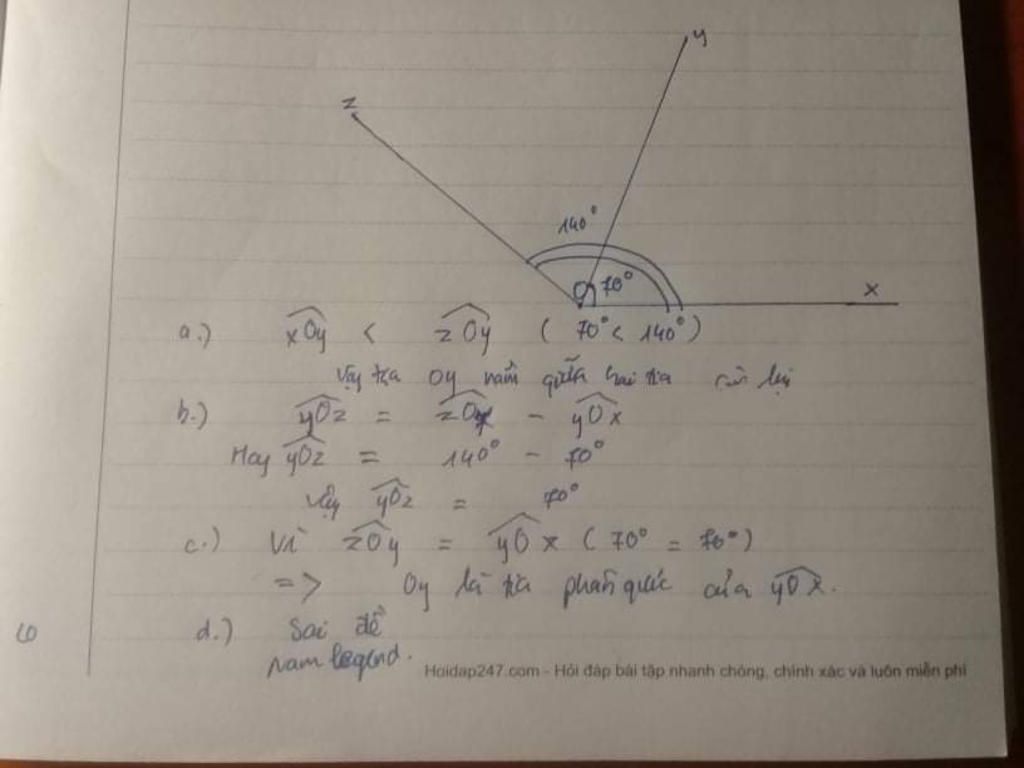 y
z
140°
O 70°
x
a.) xOy < zOy ( 70° < 140° )
Vậy tia Oy nằm giữa hai tia còn lại
b.) yOz = zOx - yOx
Hay yOz = 140° - 70°
Vậy yOz = 70°
c.) Vì zOy = yOx ( 70° = 70° )
=> Oy là tia phân giác của yOx.
d.) Sai đề
Nam legend.
Hoidap247.com - Hỏi đáp bài tập nhanh chóng, chính xác và luôn miễn phí